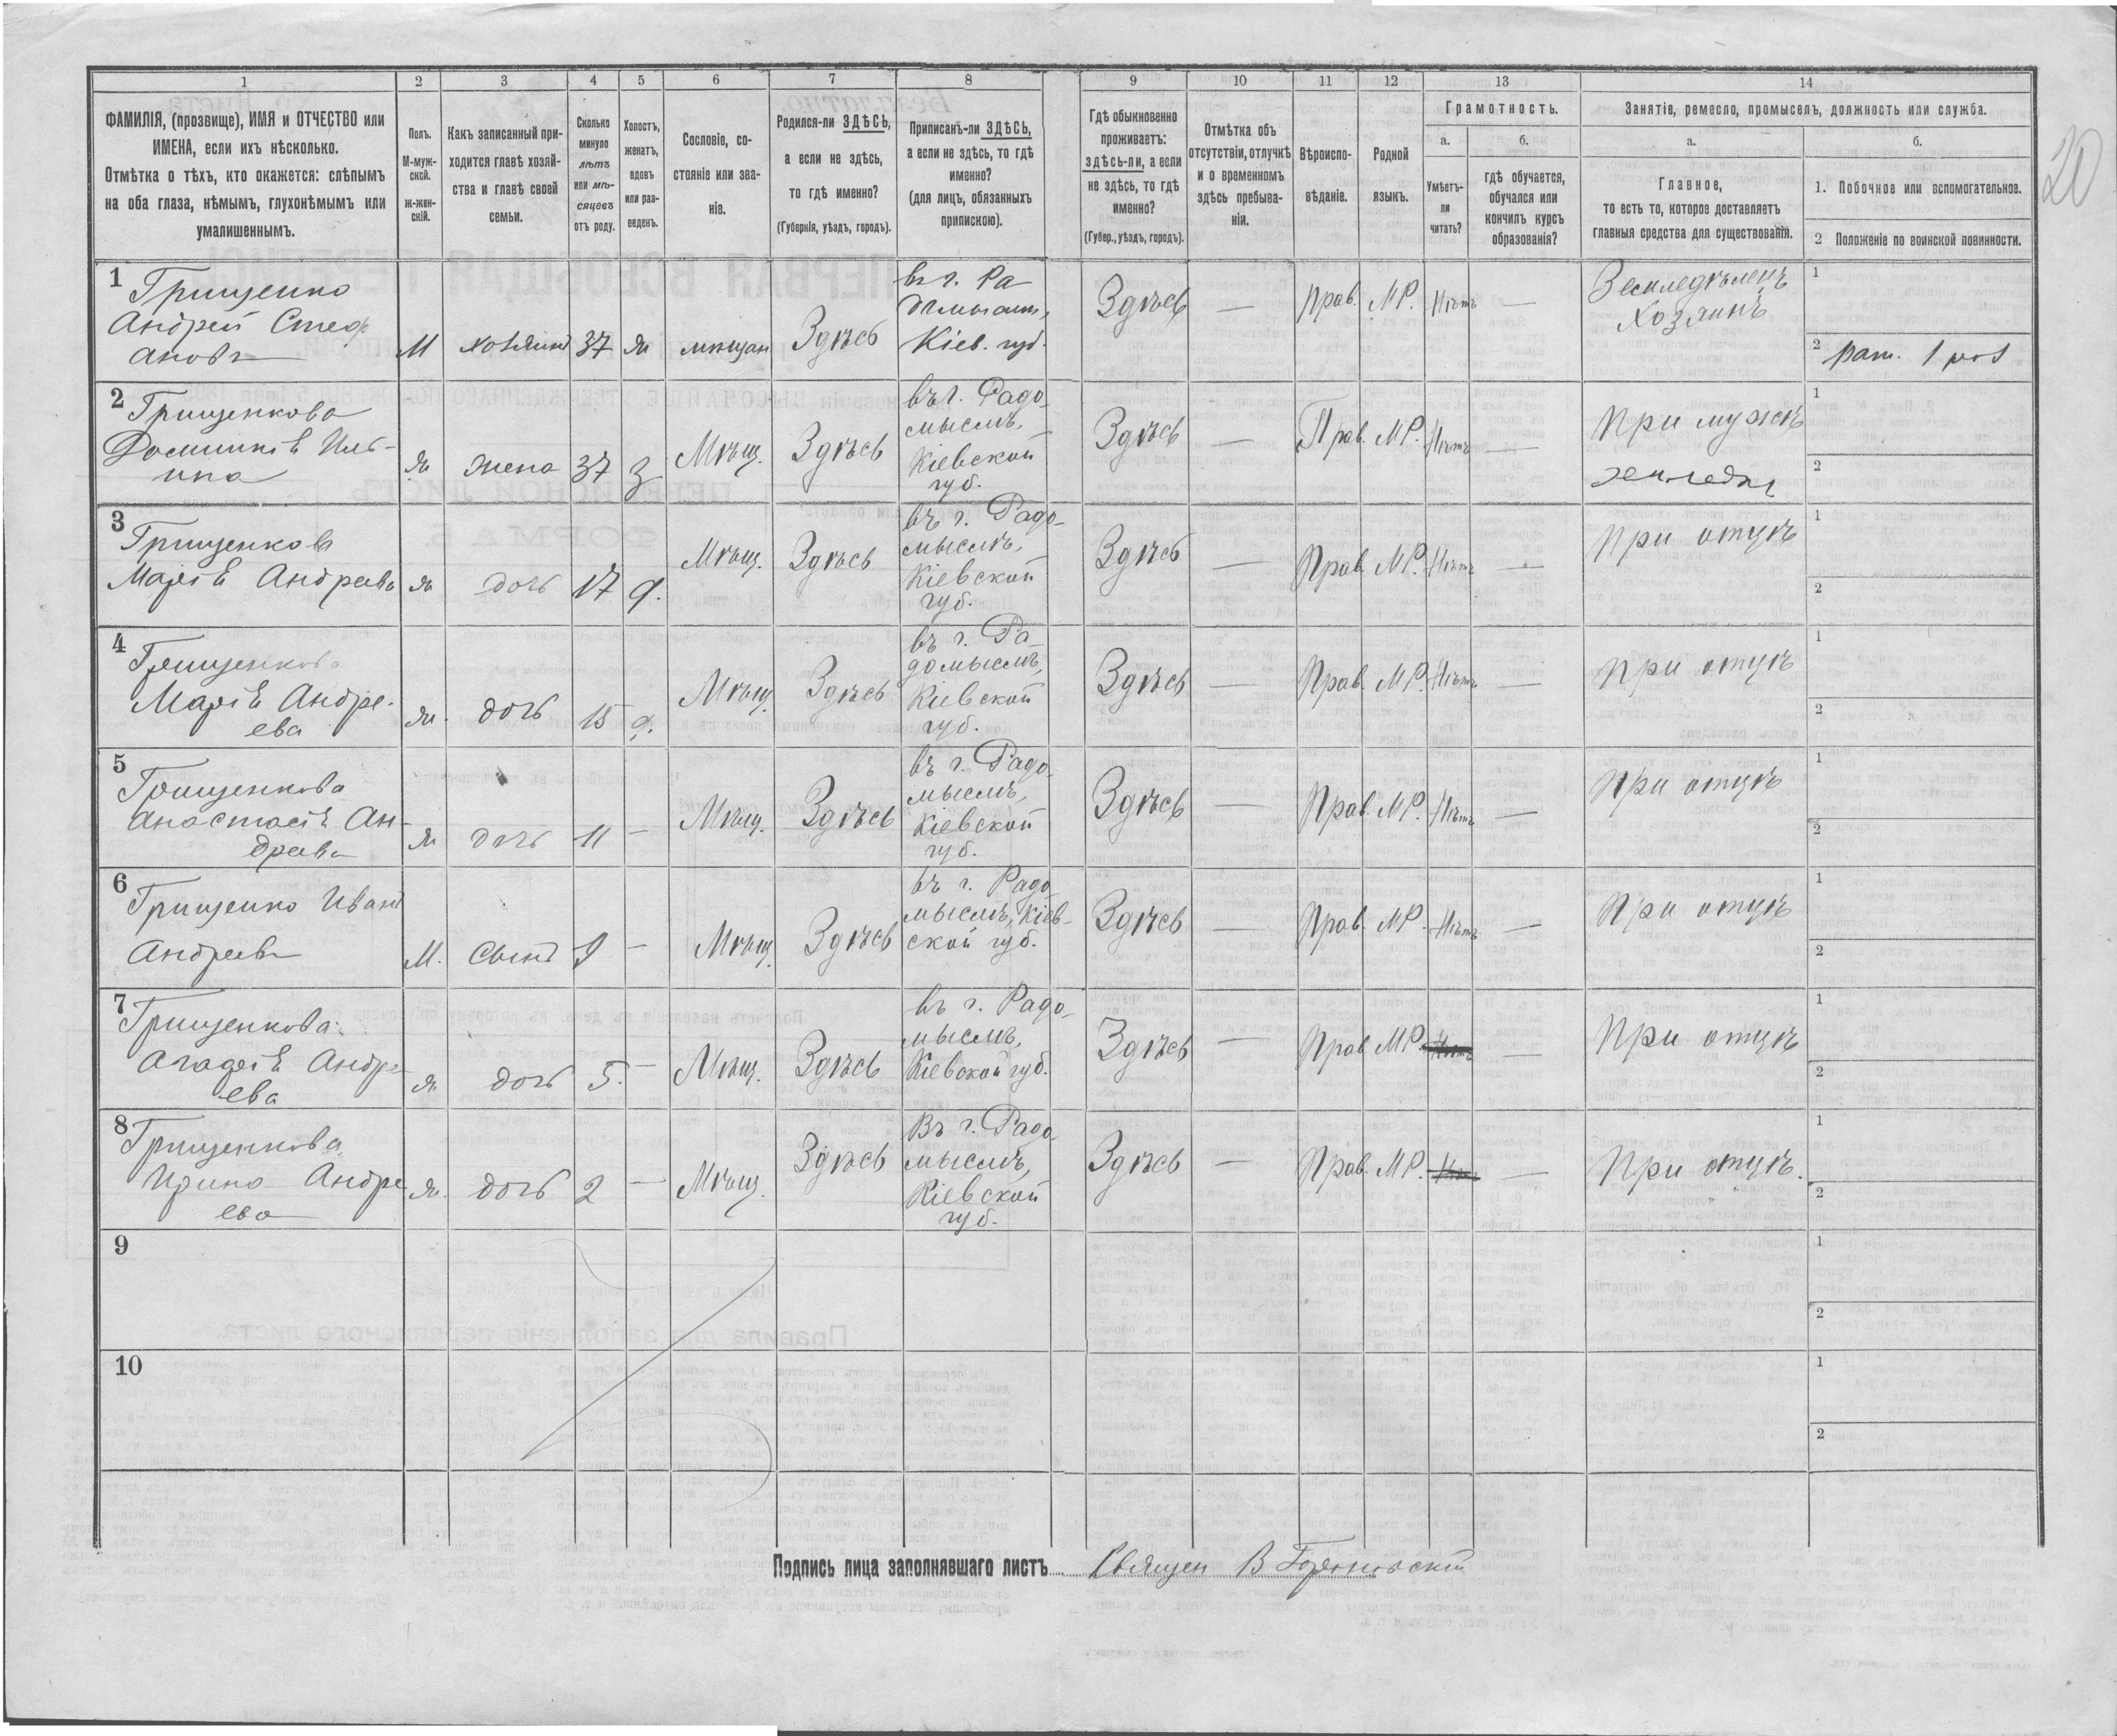 1 2 3 4 5 6 7 8 9 10 11 12 13 14
ФАМИЛІЯ, (прозвище), ИМЯ и ОТЧЕСТВО или
ИМЕНА, если ихъ нѣсколько.
Отмѣтка о тѣхъ, кто окажется: слѣпымъ
на оба глаза, нѣмымъ, глухонѣмымъ или
умалишеннымъ.
Полъ.
М-муж-
ской.
ж-жен-
скій.
Какъ записанный при-
ходится главѣ хозяй-
ства и главѣ своей
семьи.
Сколько
минуло
лѣтъ
или мѣ-
сяцевъ
отъ роду.
Холостъ,
женатъ,
вдовъ
или раз-
веденъ.
Сословіе, со-
стояніе или зва-
ніе.
Родился-ли ЗДѢСЬ,
а если не здѣсь,
то гдѣ именно?
(Губернія, уѣздъ, городъ).
Приписанъ-ли ЗДѢСЬ,
а если не здѣсь, то гдѣ
именно?
(для лицъ, обязанныхъ
припискою).
Гдѣ обыкновенно
проживаетъ:
здѣсь-ли, а если
не здѣсь, то гдѣ
именно?
(Губер., уѣздъ, городъ).
Отмѣтка объ
отсутствіи, отлучкѣ
и о временномъ
здѣсь пребыва-
ніи.
Вѣроиспо-
вѣданіе.
Родной
языкъ.
Грамотность.
а.
Умѣетъ-
ли
читать?
б.
гдѣ обучается,
обучался или
кончилъ курсъ
образованія?
Занятіе, ремесло, промыселъ, должность или служба.
а.
Главное,
то есть то, которое доставляетъ
главныя средства для существованія.
б.
1. Побочное или вспомогательное.
2 Положеніе по воинской повинности.
20
1
Грищенко
Андрей Стеф
ановъ
М хозяинъ 37 ж мѣщан Здѣсь
въ г. Ра
Кіев. губ.
Здѣсь — Прав. МР. Нѣтъ —
Земледѣлецъ
Хозяинъ
1
2 рат. 1 раз
2
Грищенкова
Домникія Иль-
ина
ж жена 37 з Мѣщ. Здѣсь
въ г. Радо-
мыслѣ,
Кіевской
губ.
Здѣсь — Прав. МР. Нѣтъ —
При мужѣ
1
2
3
Грищенкова
Марія Андреева
ж дочь 17 д. Мѣщ. Здѣсь
въ г. Радо-
мыслѣ,
Кіевской
губ.
Здѣсь — Прав. МР. Нѣтъ —
При отцѣ
1
2
4
Грищенкова
Марія Андре-
ева
ж. дочь 15 д. Мѣщ. Здѣсь
въ г. Ра-
домыслѣ,
Кіевской
губ.
Здѣсь — Прав. МР. Нѣтъ —
При отцѣ
1
2
5
Грищенкова
Анастасія Ан-
дреева
ж дочь 11 — Мѣщ. Здѣсь
въ г. Радо-
мыслѣ,
Кіевской
губ.
Здѣсь — Прав. МР. Нѣтъ —
При отцѣ
1
2
6
Грищенко Иванъ
Андреевъ
М. Сынъ 9 — Мѣщ. Здѣсь
въ г. Радо
мыслѣ, Кіев-
ской губ.
Здѣсь — Прав. МР. Нѣтъ —
При отцѣ
1
2
7
Грищенкова
Агафія Андре-
ева
ж дочь 5. — Мѣщ. Здѣсь
въ г. Радо-
мыслѣ,
Кіевской губ.
Здѣсь — Прав МР. Нѣтъ —
При отцѣ
1
2
8
Грищенкова
Ирина Андре
ева
ж. дочь 2 — Мѣщ. Здѣсь
Въ г. Радо-
мыслѣ,
Кіевской
губ.
Здѣсь — Прав. МР. Нѣтъ —
При отцѣ.
1
2
9
1
2
10
1
2
Подпись лица заполнявшаго листъ Священ В